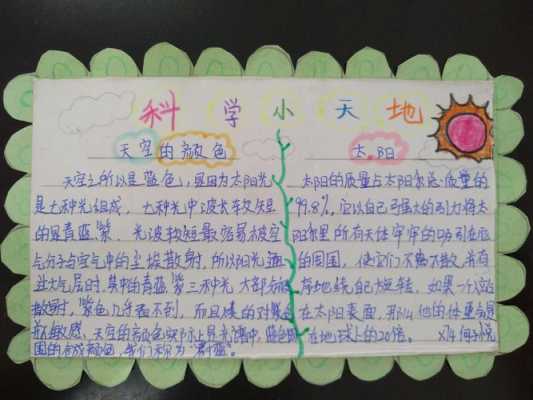 科学小天地
天空的颜色
天空之所以是蓝色,是因为太阳光
是七种光组成,七种光中波长较短
的是青蓝紫,光波较短最容易被空
气分子与空气中的尘埃散射,所以阳光通
过大气层时,其中的青蓝紫三种光大部分被
散射,紫色几乎看不到,而且人的
敏感,天空的颜色实际上是光谱中蓝色
围的合成颜色,我们称为"蔚蓝"。
太阳
太阳的质量占太阳系总质量的
99.8%,它以自己强大的引力将太
阳系里所有天体牢牢的吸引在
的周围,使它们不离不散,并有
序地绕自己旋转。如果一个人站
在太阳表面,那么他的体重会是
在地球上的20倍。